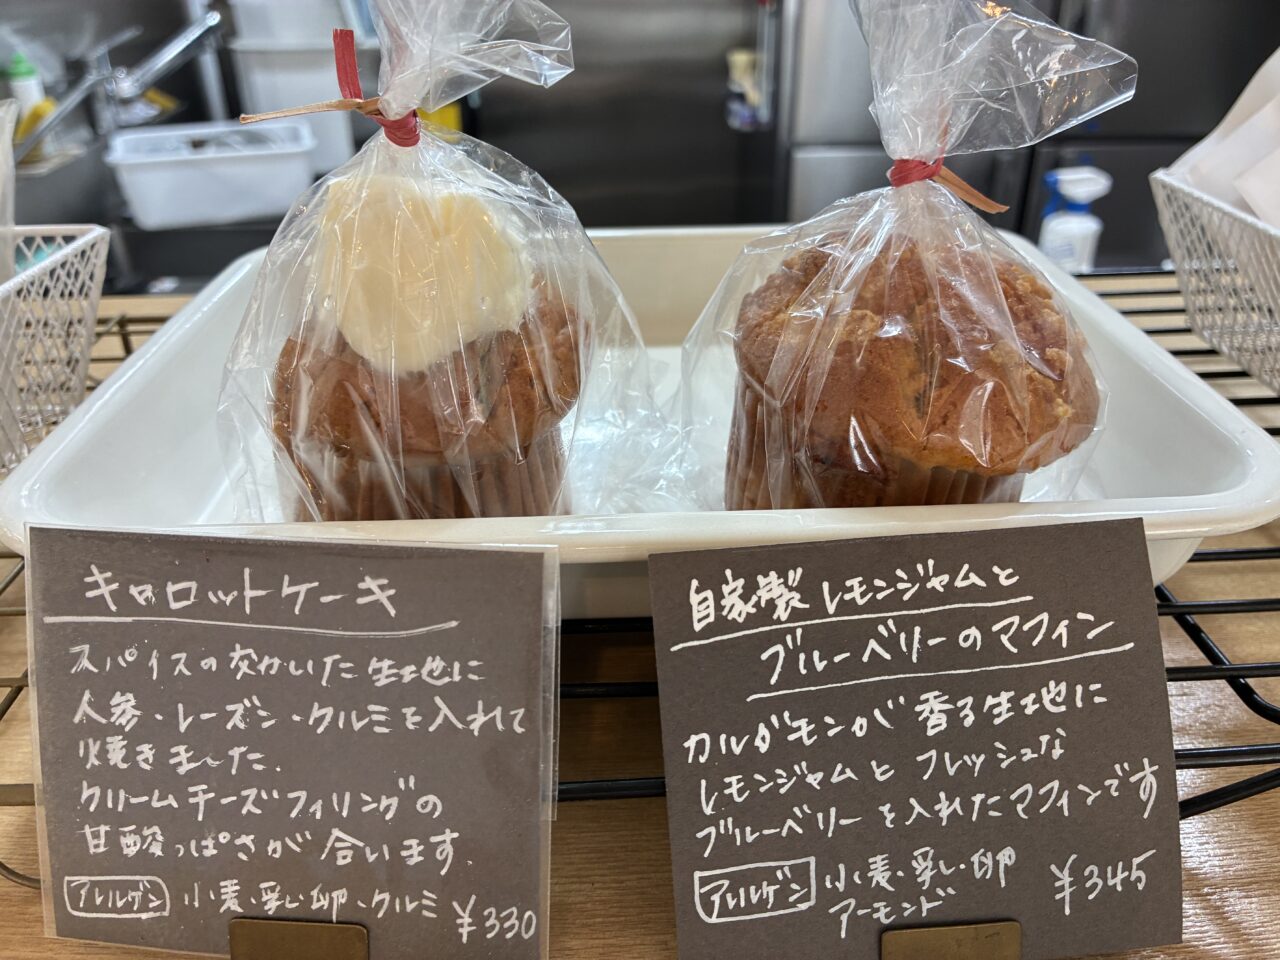 キャロットケーキ
スパイスの効いた生地に
人参・レーズン・クルミを入れて
焼きました。
クリームチーズフィリングの
甘酸っぱさが合います。
アレルゲン 小麦・乳・卵・クルミ
¥330
自家製レモンジャムと
ブルーベリーのマフィン
カルダモンが香る生地に
レモンジャムとフレッシュな
ブルーベリーを入れたマフィンです
アレルゲン 小麦・乳・卵
アーモンド
¥345